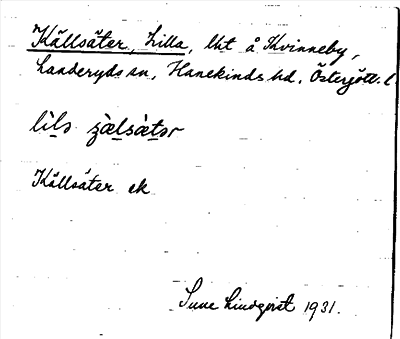 Källsäter, Lilla, lht å Kvinneby,
Landeryds sn, Hanekinds hd, Östergötl. l.
lìlə ʒæ̀lsæ̀tər
Källsäter ek
Sune Lindqvist 1931.